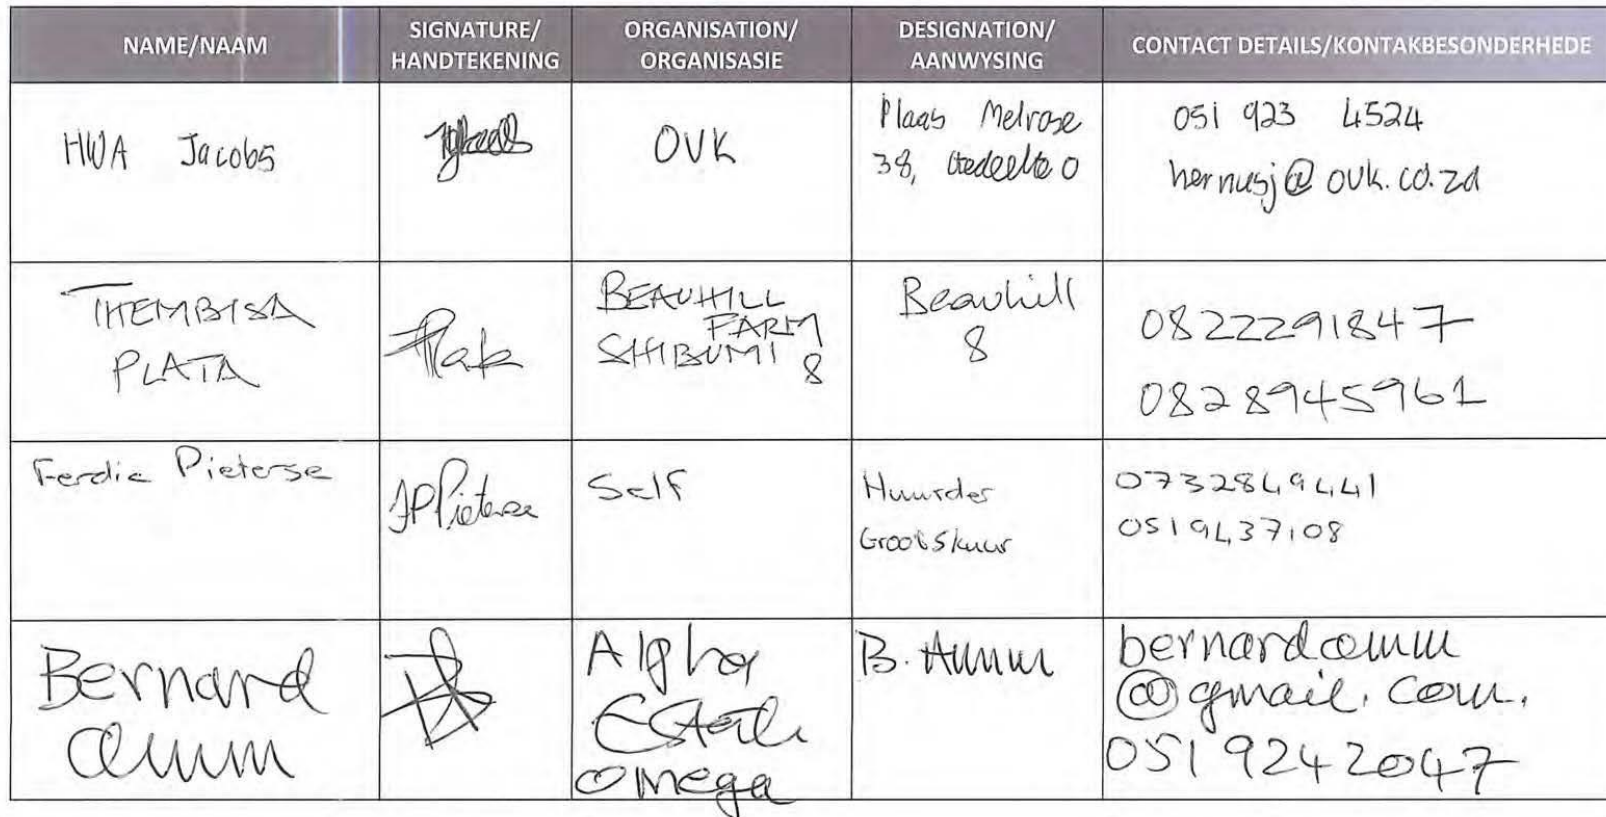 NAME/NAAM
SIGNATURE/
HANDTEKENING
ORGANISATION/
ORGANISASIE
DESIGNATION/
AANWYSING
CONTACT DETAILS/KONTAKBESONDERHEDE
HWA Jacobs
OVK
Plaas Melrose
38, Gedeelte 0
051 923 4524
hernusj@ovk.co.za
THEMBISA
PLATA
BEAUHILL
FARM
SHIBUMI 8
Beauhill
8
0822291847
0828945961
Ferdie Pieterse
JP Pieterse
Self
Huurder
Grootskuur
0732849441
0519437108
Bernard
Alpha
Estate
omega
B.
@gmail.com.
051 9242047